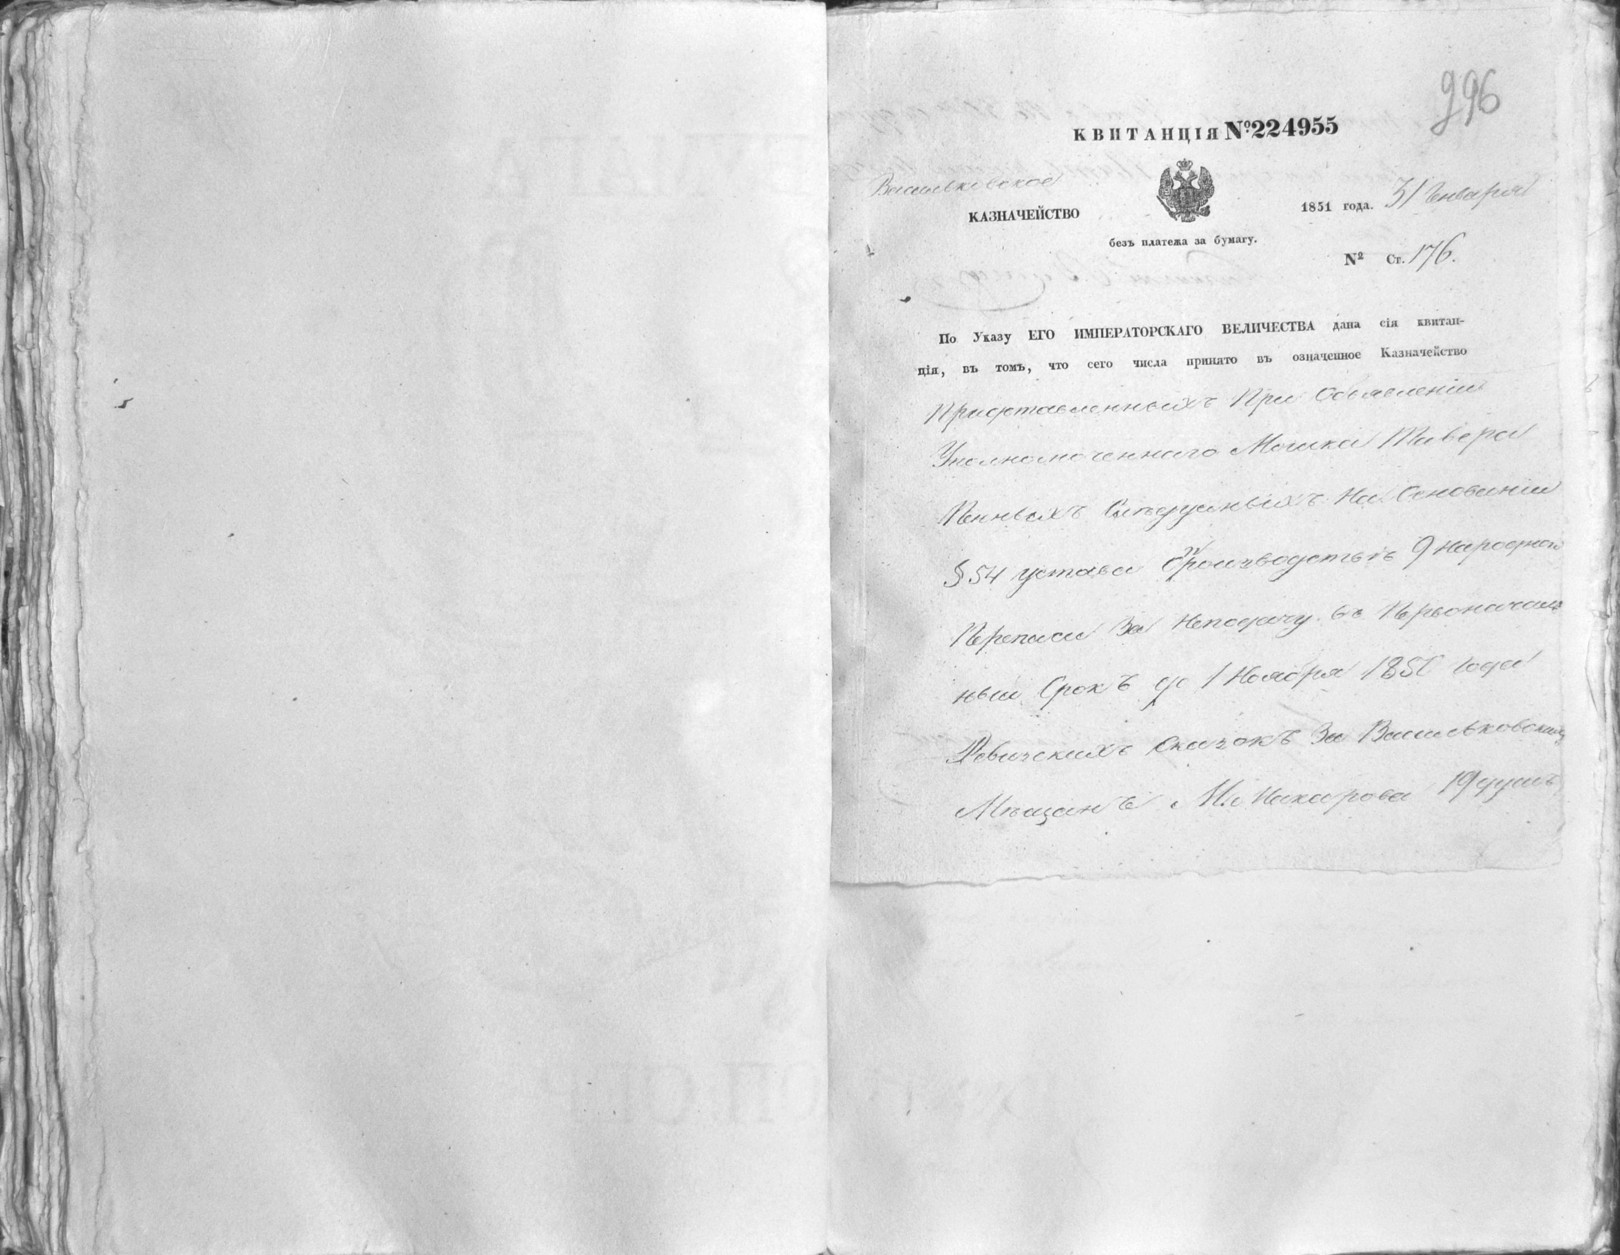 996
КВИТАНЦІЯ №224955
Васильковское
КАЗНАЧЕЙСТВО
1851 года. 31 Января
безъ платежа за бумагу.
№ Ст. 176.
По Указу ЕГО ИМПЕРАТОРСКАГО ВЕЛИЧЕСТВА дана сія квитан-
ція, въ томъ, что сего числа принято въ означенное Казначейство
Представленныхъ При Объявленіи
Уполномоченнаго Мошка
На Основаніи
§ 54 устава 9 Народной
Переписи За Неподачу въ Первоначаль
ный Срокъ до 1 Ноября 1850 года
Ревизскихъ Сказокъ За Васильковскихъ
Мѣщанъ М. Макарова 19 душъ